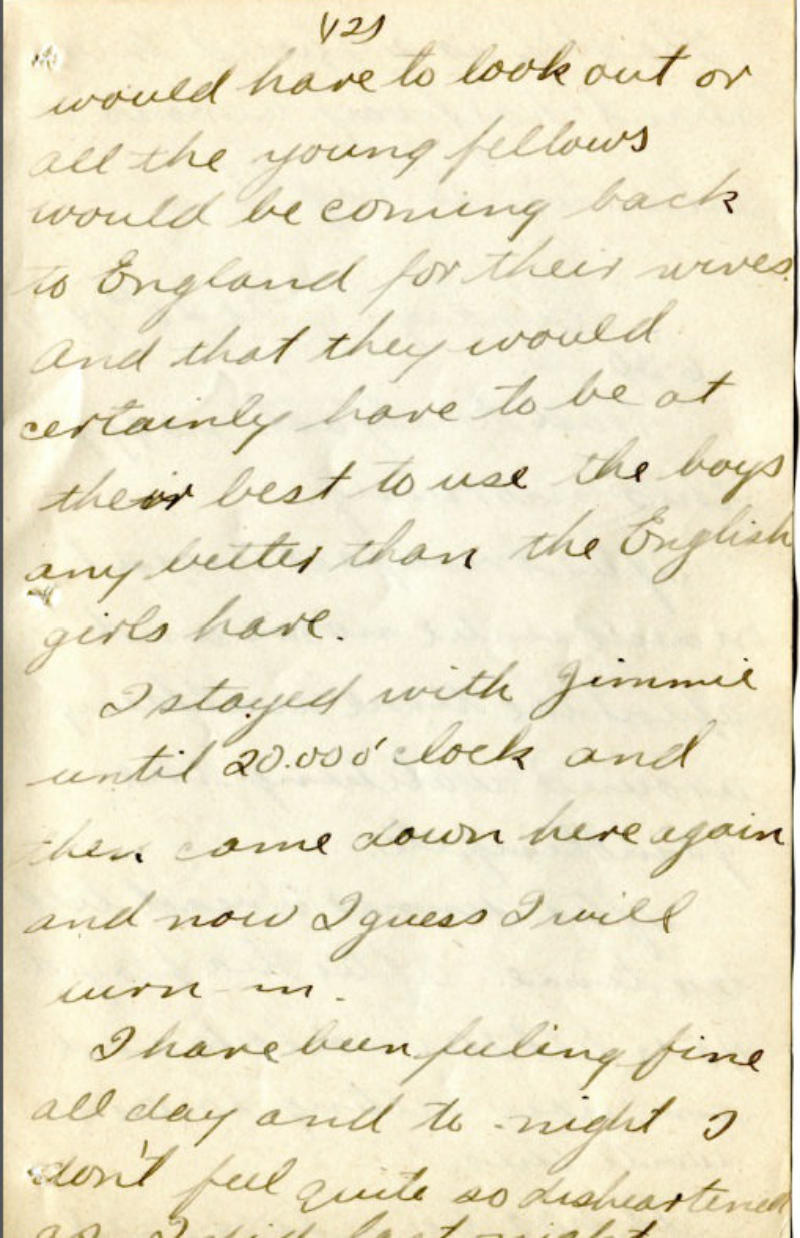 (12)
would have to look out or
all the young fellows
would be coming back
to England for their wives.
And that they would
certainly have to be at
their best to use the boys
any better than the English
girls have.
I stayed with Jimmie
until 20.00 o'clock and
then came down here again
and now I guess I will
turn in.
I have been feeling fine
all day and to-night I
don't feel quite so disheartened
as I did last night